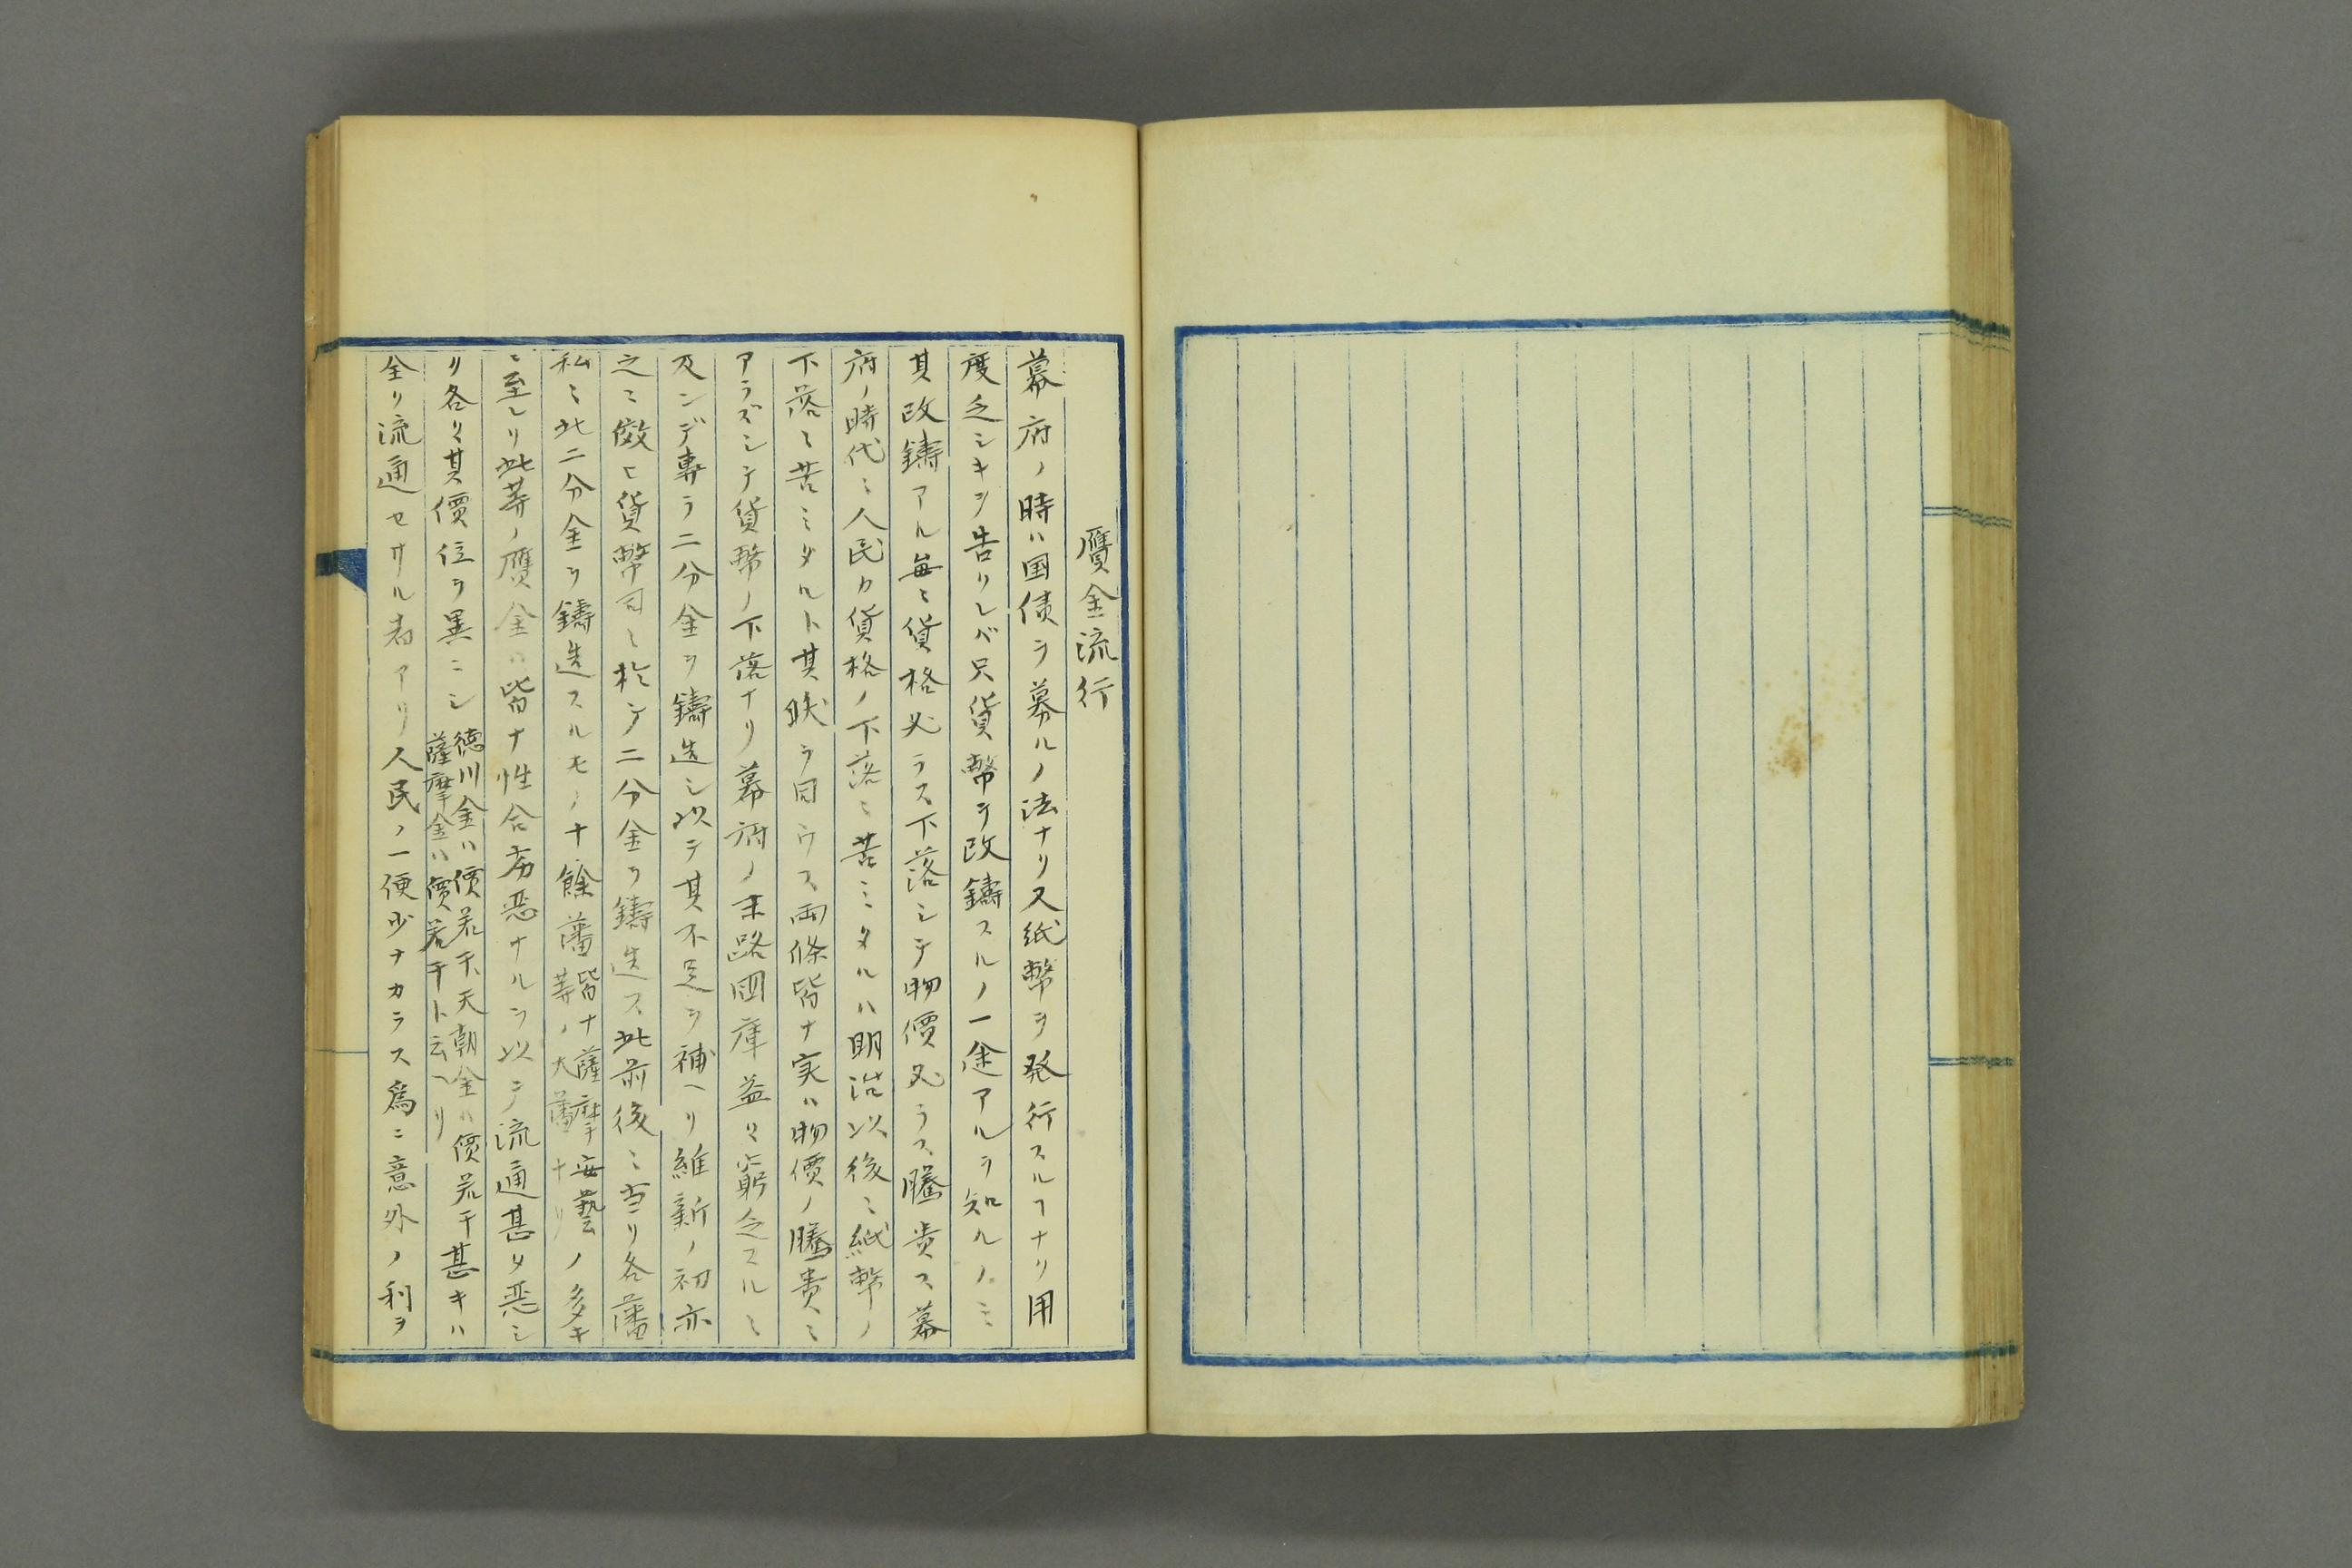 贋金流行
幕府ノ時ハ国債ヲ募ルノ法ナリ又紙幣ヲ発行スルヿナリ用
度乏シキヲ告リレバ只貨幣ヲ改鑄スルノ一途アルヲ知ルノミ
其改鑄アル毎ニ貨格必ラス下落シテ物價必ラス騰貴ス幕
府ノ時代ニ人民カ貨格ノ下落ニ苦ミタルハ明治以後ニ紙幣ノ
下落ニ苦ミタルト其趺ヲ同ウス両條皆ナ実ハ物價ノ騰貴ニ
アラズシテ貨幣ノ下落ナリ幕府ノ末路國庫益々窮乏スルニ
及ンデ専ラ二分金ヲ鑄造シ以テ其不足ヲ補ヘリ維新ノ初亦
之ニ傚ヒ貨幣司ニ於テ二分金ヲ鑄造ス此前後ニ当リ各藩
私ニ此二分金ヲ鑄造スルモノ十餘藩皆ナ薩摩安藝等ノ大藩ナリノ多キ
ニ至レリ此等ノ贋金ハ皆ナ性合劣悪ナルヲ以テ流通甚タ悪シ
リ各々其價位ヲ異ニシ徳川金ハ價若干、天朝金ハ價若干薩摩金ハ價若干ト云ヘリ甚キハ
全リ流通セサル者アリ人民ノ一便少ナカラス為ニ意外ノ利ヲ